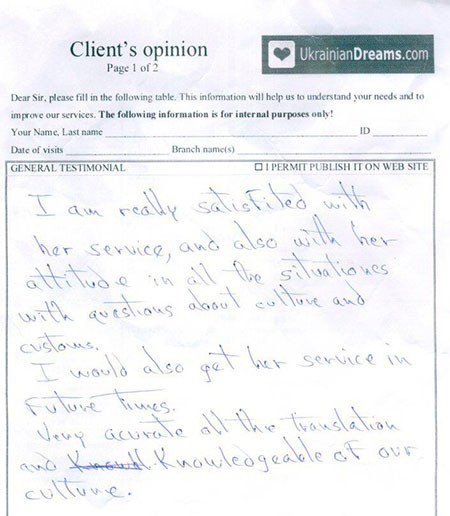 Client's opinion
Page 1 of 2
UkrainianDreams.com
Dear Sir, please fill in the following table. This information will help us to understand your needs and to
improve our services. The following information is for internal purposes only!
Your Name, Last name ID
Date of visits Branch name(s)
GENERAL TESTIMONIAL ☐ I PERMIT PUBLISH IT ON WEB SITE
I am really satisfited with
her service, and also with her
attitude in all the situationes
with questions about culture and
customs.
I would also get her service in
future times.
Very acurate all the translation
and Knowledgeable of our
culture.